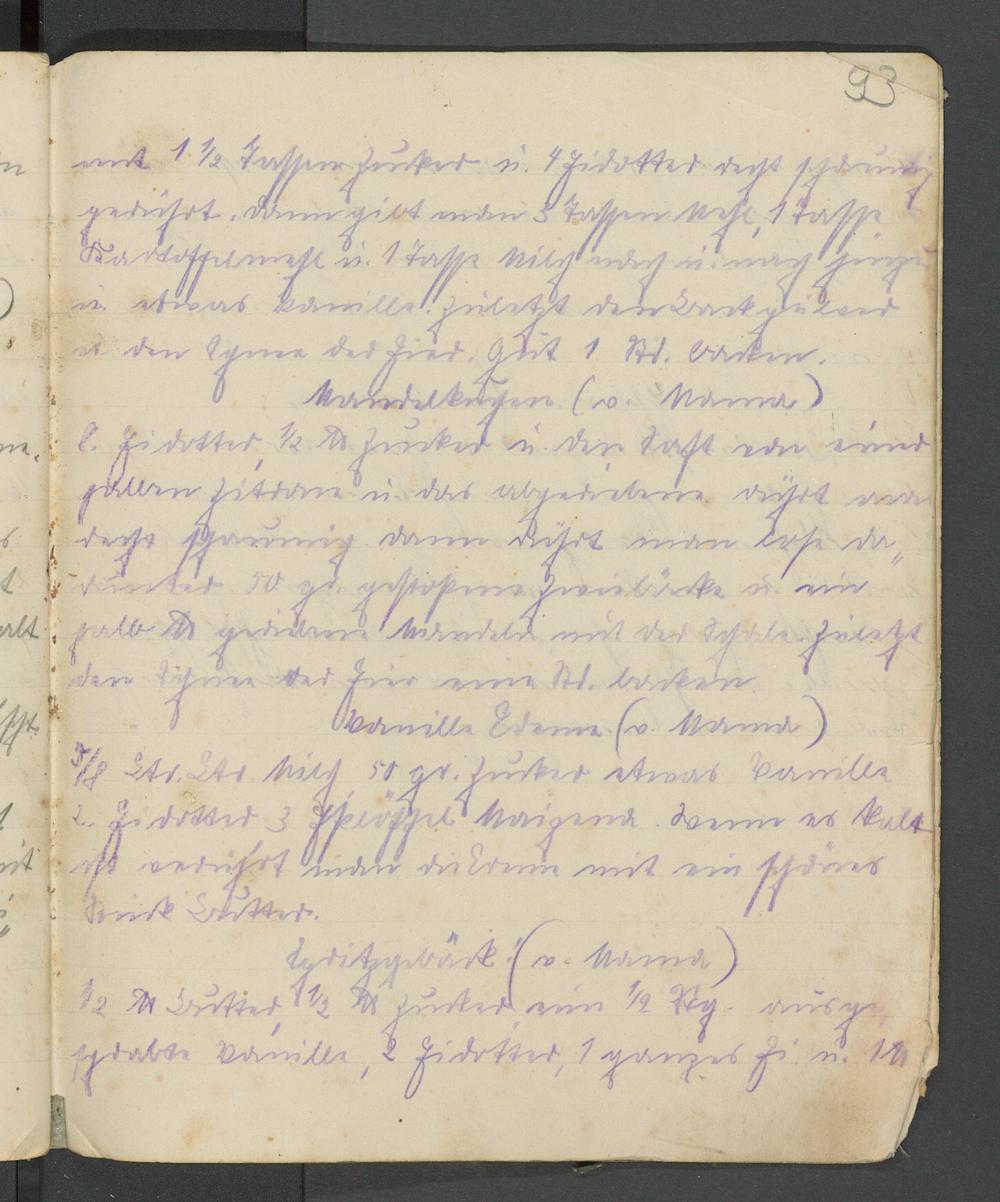 93
mit 1 1/2 Tassen Zucker u. 4 Eidotter recht schaumig
gerührt. dann gibt man 3 Tassen Mehl, 1 Tasse
Kartoffelmehl u. 1 Tasse Milch nach u. nach hinzu
u. etwas Vanille. Zuletzt den Backpulver
u. den Schnee der Eier. Gut 1 Std. backen.
Mandelkuchen (v. Mama)
8. Eidotter, 1/2 ℔ Zucker u. den Saft von einer
halben Zitrone u. das abgeriebene rührt man
recht schaumig dann rührt man lose da„
runter 50 gr. gestoßene Zwiebäcke u. ein
halb ℔ geriebene Mandeln mit der Schale. Zuletzt
den Schnee der Eier eine Std. backen.
Vanille Creme (v. Mama)
3/8 Ltr. Ltr. Milch, 50 gr. Zucker etwas Vanille
2. Eidotter 3 Eßlöffel Maizena. Wenn es kalt
ist verrührt man die Creme mit ein schönes
Stück Butter.
Spritzgebäck! (v. Mama)
1/2 ℔ Butter, 1/2 ℔ Zucker, eine 1/2 Stg. ausge„
schrabte Vanille, 2 Eidotter, 1 ganzes Ei u. 1 ℔